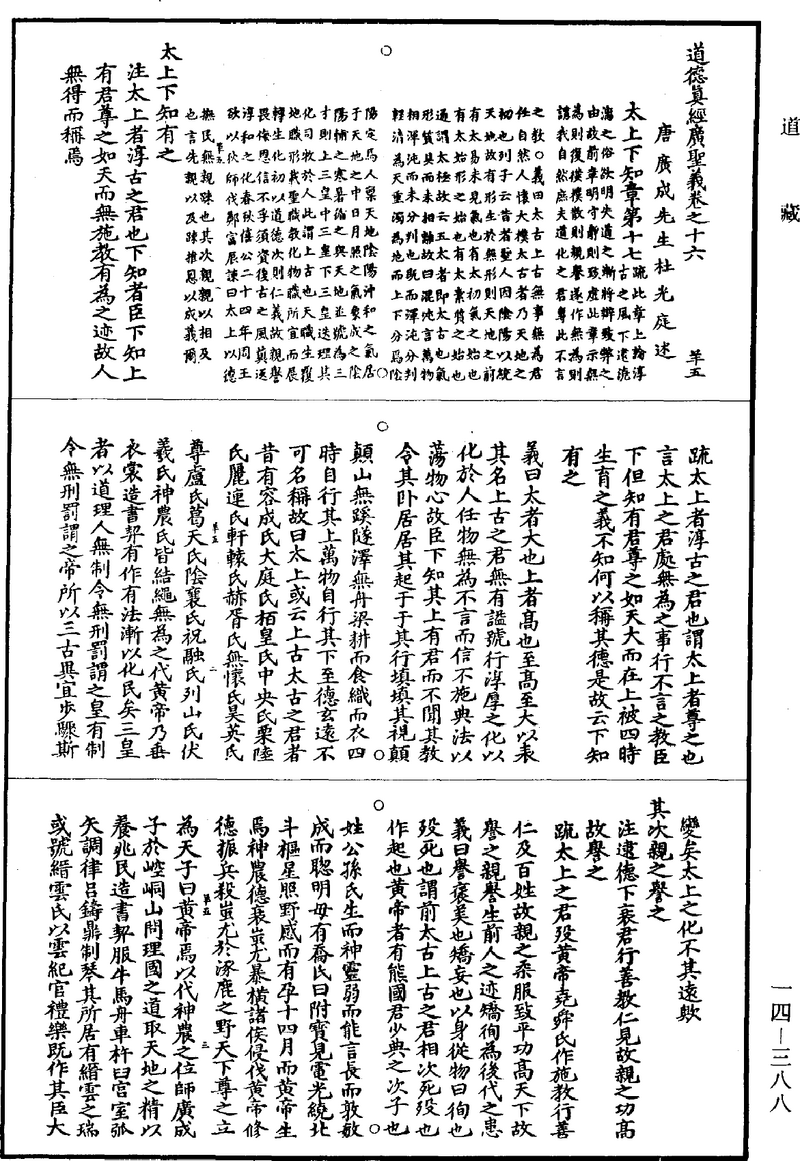 道藏
道德真經廣聖義卷之十六 羊五
唐廣成先生杜光庭述
太上下知章第十七
疏此章上論淳
古之風下逮澆
漓之俗欲明失道之漸將辯致弊之
由故前章明守靜則致虛此章示無
為則復樸樸散則親譽遂作無為則
謂我自然庶夫道化之君粵此不言
之教○義曰太古上古無事無為君
任自然人懷大樸太古者乃天地之
初也列子云昔者聖人因陰陽以統
天地故有形生於無形則天地之前
有太易未見氣也有太初氣之始也
有太始形之始也有太素質之始也
通謂太極故云五太者即太古也氣
形質具而未相離故曰混沌言萬物
相渾沌而未分也既而渾沌分判
輕清為天重濁為地而上下分焉陰
陽定焉人稟天地陰陽沖和之氣居
于天地之中日月之氣象成之陰
陽輔之寒暑循之與天地並號為三
才則上三皇中三皇下三皇迭理其
化司牧於人此謂上古也天職生覆
地職形載聖職教化物職所宜而展
轉生化初以道德次則仁義故親譽
畏侮恩信不孚須資復古之風冀還
淳和之化春秋僖公二十四年周王
欲以狄師伐鄭富辰諫曰太上以德
羊五
撫民無親踈也其次親親以相及
也言先親以及踈推恩以成義爾
太上下知有之
注太上者淳古之君也下知者臣下知上
有君尊之如天而無施教有為之迹故人
無得而稱焉
疏太上者淳古之君也謂太上者尊之也
言太上之君處無為之事行不言之教臣
下但知有君尊之如天大而在上被四時
生育之義不知何以稱其德是故云下知
有之
義曰太者大也上者高也至高至大以表
其名上古之君無有謚號行淳厚之化以
化於人任物無為不言而信不施典法以
蕩物心故臣下知其上有君而不聞其教
令其卧居居其起于于其行填填其視顛
顛山無蹊隧澤無舟梁耕而食織而衣四
時自行其上萬物自行其下至德玄遠不
可名稱故曰太上或云上古太古之君者
昔有容成氏大庭氏栢皇氏中央氏栗陸
氏麗連氏軒轅氏赫胥氏無懷氏昊英氏
羊五 二
尊盧氏葛天氏陰襄氏祝融氏列山氏伏
羲氏神農氏皆結繩無為之代黃帝乃垂
衣裳造書契有作有法漸以化民矣三皇
者以道理人無制令無刑罰謂之皇有制
令無刑罰謂之帝所以三古異宜步驟斯
變矣太上之化不其遠歟
其次親之譽之
注逮德下衰君行善教仁見故親之功高
故譽之
疏太上之君歿黃帝堯舜氏作施教行善
仁及百姓故親之柔服致平功高天下故
譽之親譽生前人之迹矯徇為後代之患
義曰譽褒美也矯妄也以身從物曰徇也
歿死也謂前太古上古之君相次死歿也
作起也黃帝者有熊國君少典之次子也
姓公孫氏生而神靈弱而能言長而敦敏
成而聰明母有喬氏曰附寶見電光繞北
斗樞星照野感而有孕十四月而黃帝生
焉神農德衰蚩尤暴橫諸侯侵伐黃帝修
德振兵殺蚩尤於涿鹿之野天下尊之立
羊五 三
為天子曰黃帝焉以代神農之位師廣成
子於崆峒山問理國之道取天地之精以
養兆民造書契服牛馬舟車杵臼宮室弧
矢調律呂鑄鼎制琴其所居有縉雲之瑞
或號縉雲氏以雲紀官禮樂既作其臣大
一四—三八八